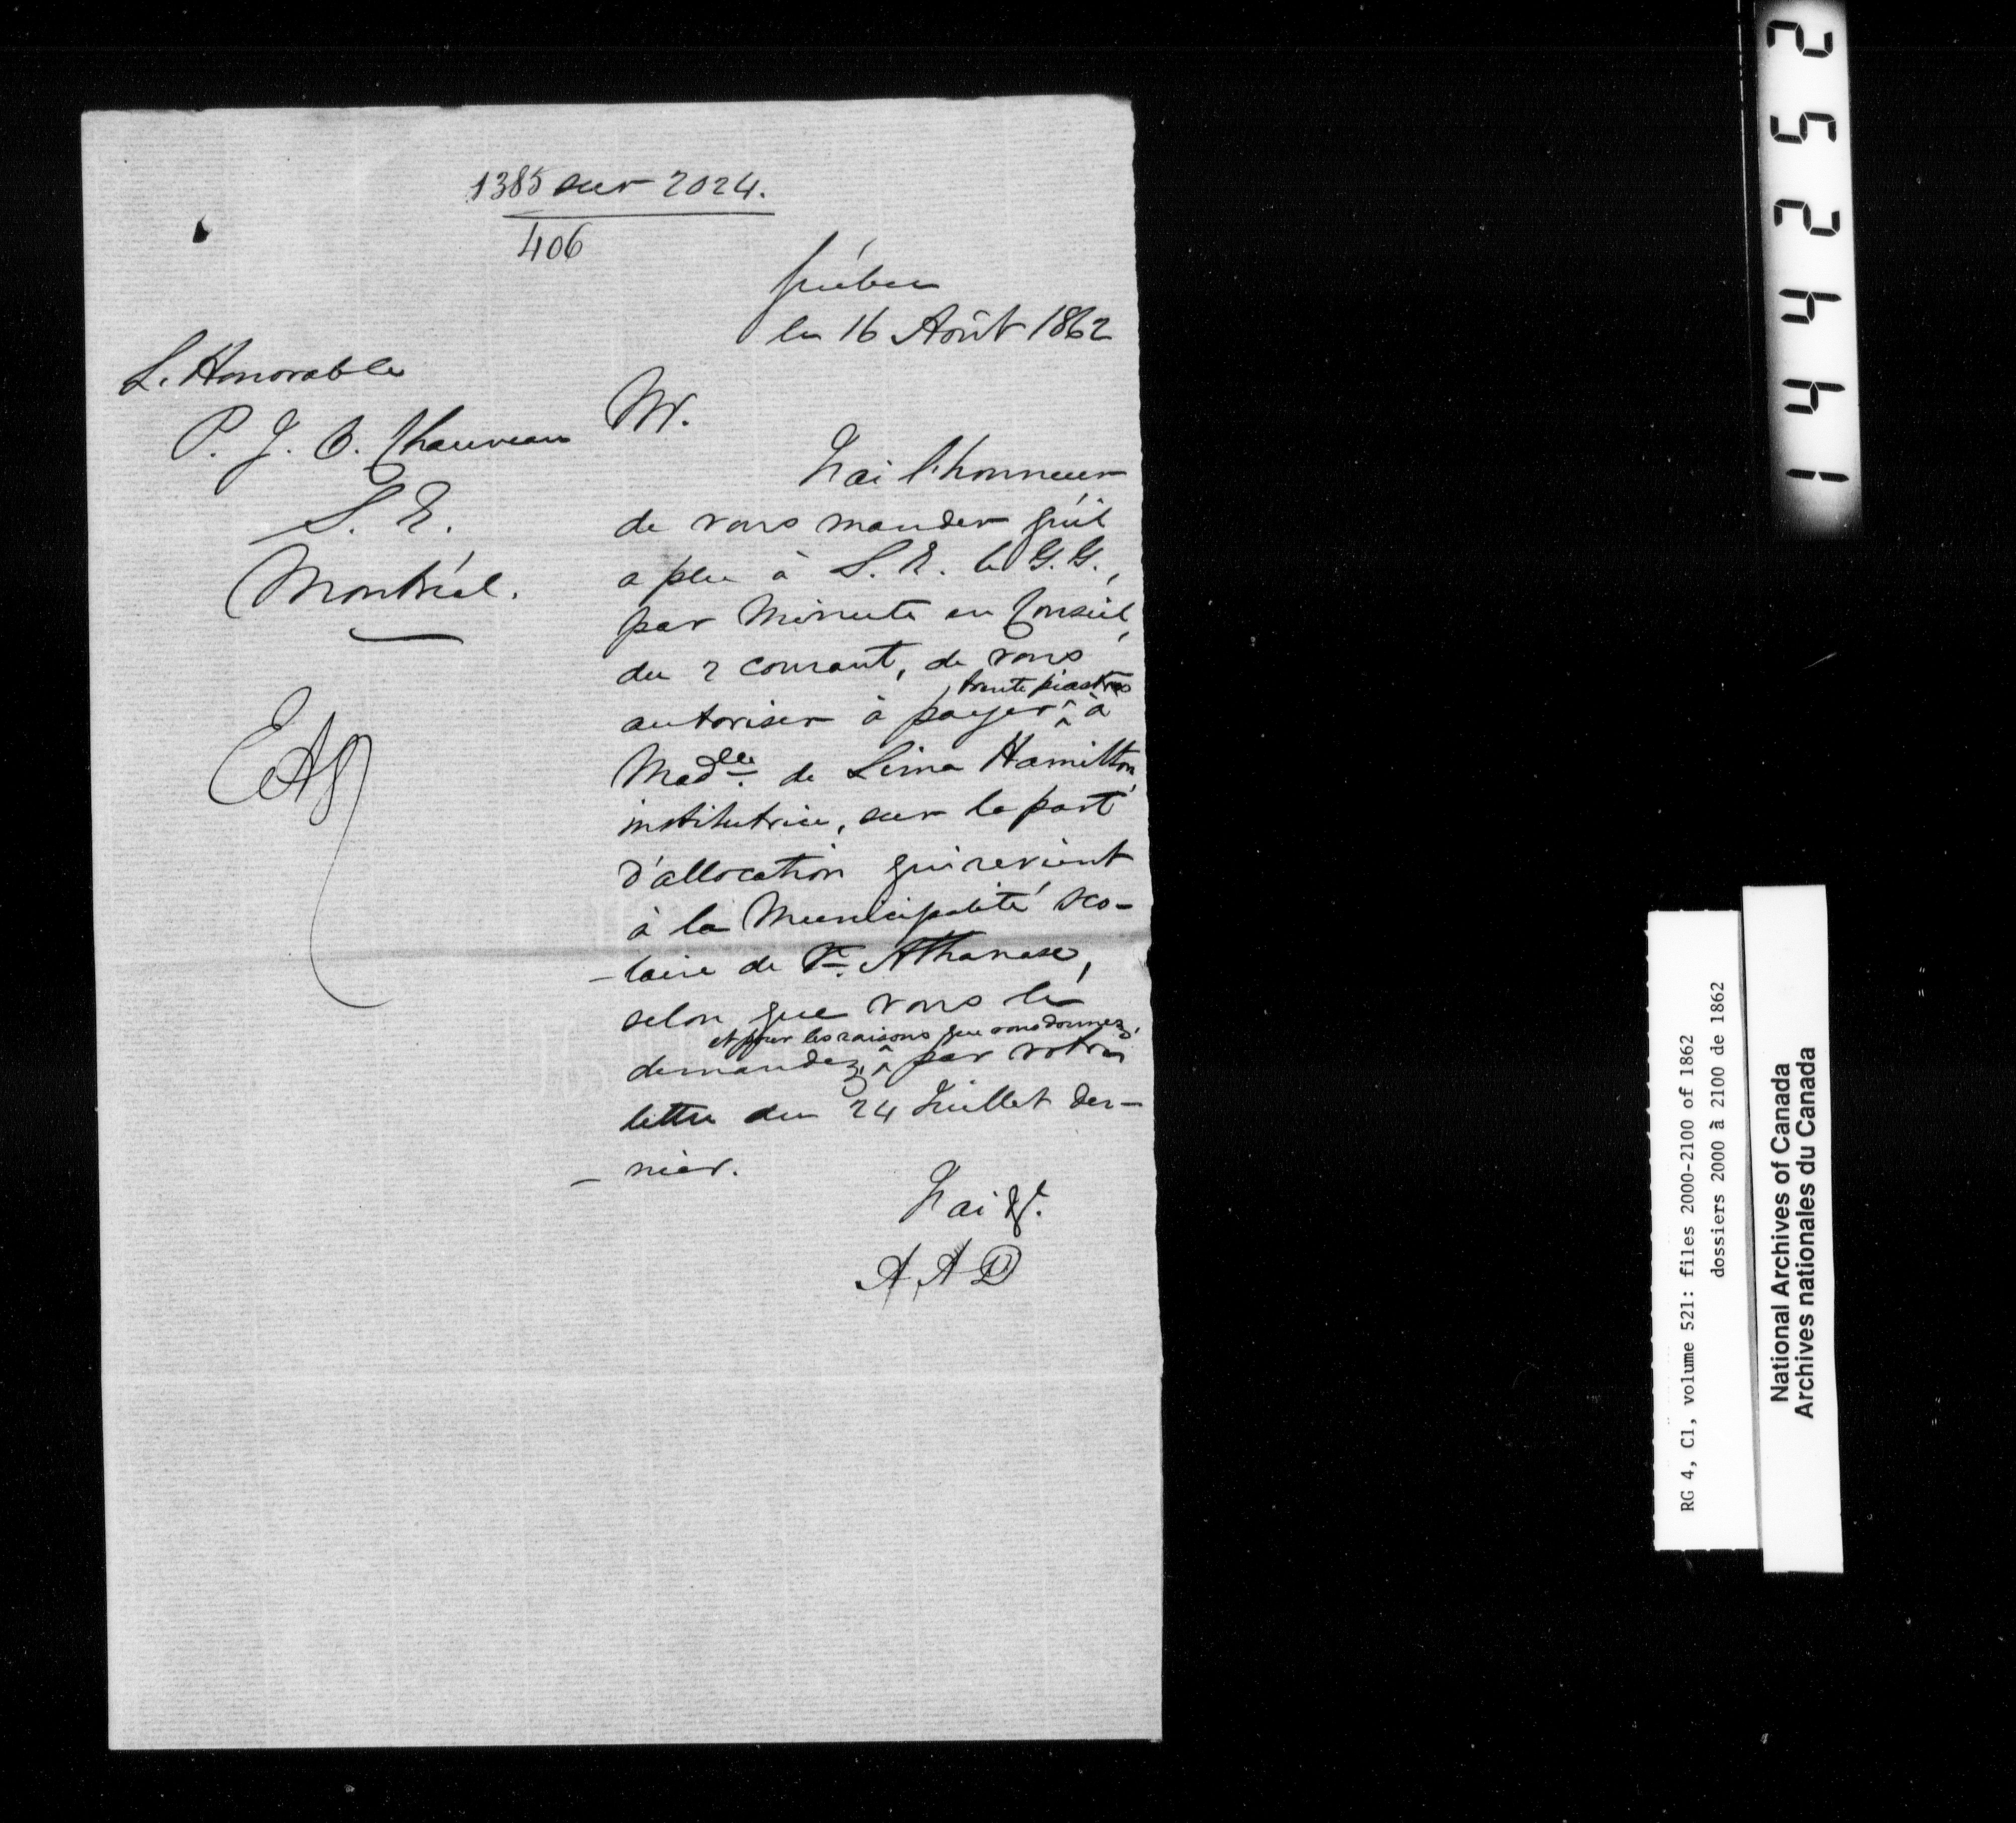 1385 sur 2024.
406
Québec
le 16 Août 1862
L'Honorable
P. J. O. Chauveau
S. E.
Montréal.
Mr.
J'ai l'honneur
de vous mander qu'il
a plu à S. E. le G. G.,
par Minute en Conseil,
du 2 courant, de vous
autoriser à payer ^ trente piastres ^ à
Madlle. de Lima Hamilton,
institutrice, sur la part
d'allocation qui revient
à la Municipalité sco-
-laire de St. Athanase,
selon que vous le
demandez, ^ et pour les raisons que vous donnez, ^ par votre
lettre du 24 Juillet der-
-nier.
J'ai &c.
A A D
14424252
RG 4, C1, volume 521: files 2000-2100 of 1862
dossiers 2000 à 2100 de 1862
National Archives of Canada
Archives nationales du Canada